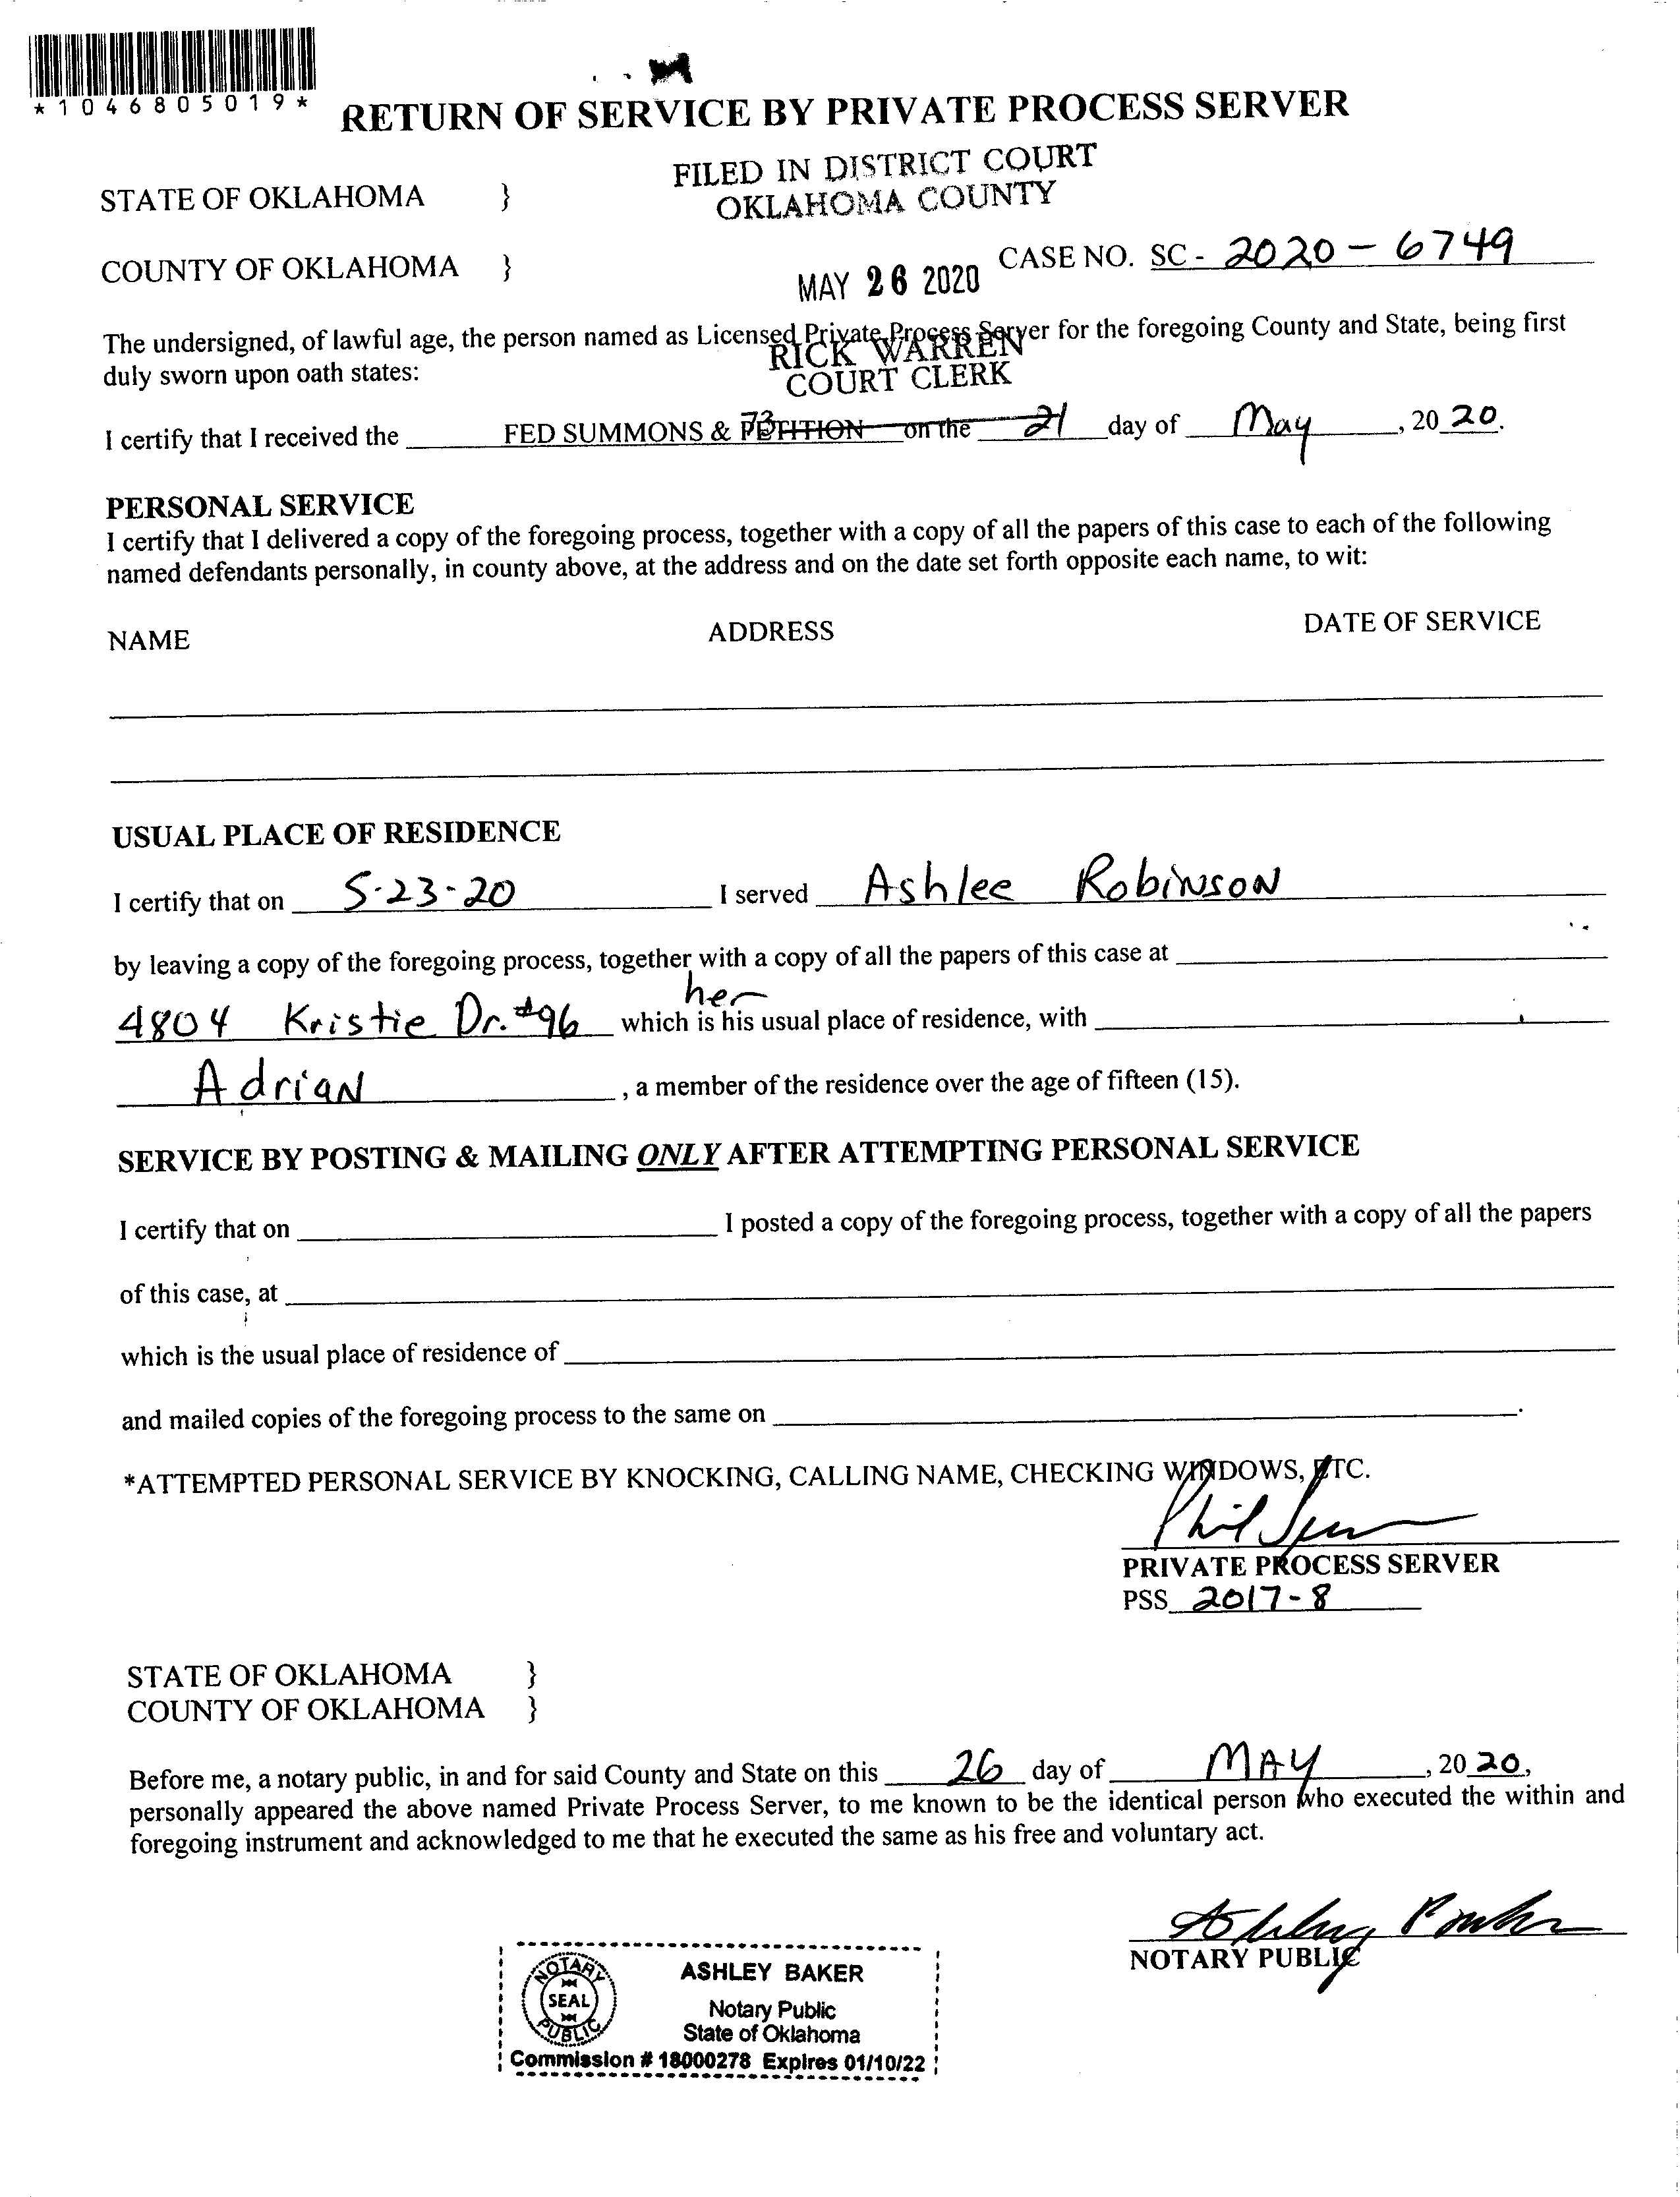 *1046805019*
RETURN OF SERVICE BY PRIVATE PROCESS SERVER
FILED IN DISTRICT COURT
OKLAHOMA COUNTY
STATE OF OKLAHOMA }
COUNTY OF OKLAHOMA }
MAY 26 2020
CASE NO. SC - 2020 - 6749
The undersigned, of lawful age, the person named as Licensed Private Process Server for the foregoing County and State, being first
RICK WARREN
duly sworn upon oath states:
COURT CLERK
73
I certify that I received the FED SUMMONS & PETITION on the 21 day of May, 20 20.
PERSONAL SERVICE
I certify that I delivered a copy of the foregoing process, together with a copy of all the papers of this case to each of the following
named defendants personally, in county above, at the address and on the date set forth opposite each name, to wit:
NAME ADDRESS DATE OF SERVICE
USUAL PLACE OF RESIDENCE
I certify that on 5-23-20 I served Ashlee Robinson
by leaving a copy of the foregoing process, together with a copy of all the papers of this case at
her
4804 Kristie Dr. #96 which is his usual place of residence, with
Adrian, a member of the residence over the age of fifteen (15).
SERVICE BY POSTING & MAILING ONLY AFTER ATTEMPTING PERSONAL SERVICE
I certify that on I posted a copy of the foregoing process, together with a copy of all the papers
of this case, at
which is the usual place of residence of
and mailed copies of the foregoing process to the same on .
*ATTEMPTED PERSONAL SERVICE BY KNOCKING, CALLING NAME, CHECKING WINDOWS, ETC.
PRIVATE PROCESS SERVER
PSS 2017-8
STATE OF OKLAHOMA }
COUNTY OF OKLAHOMA }
Before me, a notary public, in and for said County and State on this 26 day of MAY, 20 20,
personally appeared the above named Private Process Server, to me known to be the identical person who executed the within and
foregoing instrument and acknowledged to me that he executed the same as his free and voluntary act.
NOTARY PUBLIC
NOTARY
SEAL
PUBLIC
ASHLEY BAKER
Notary Public
State of Oklahoma
Commission # 18000278 Expires 01/10/22